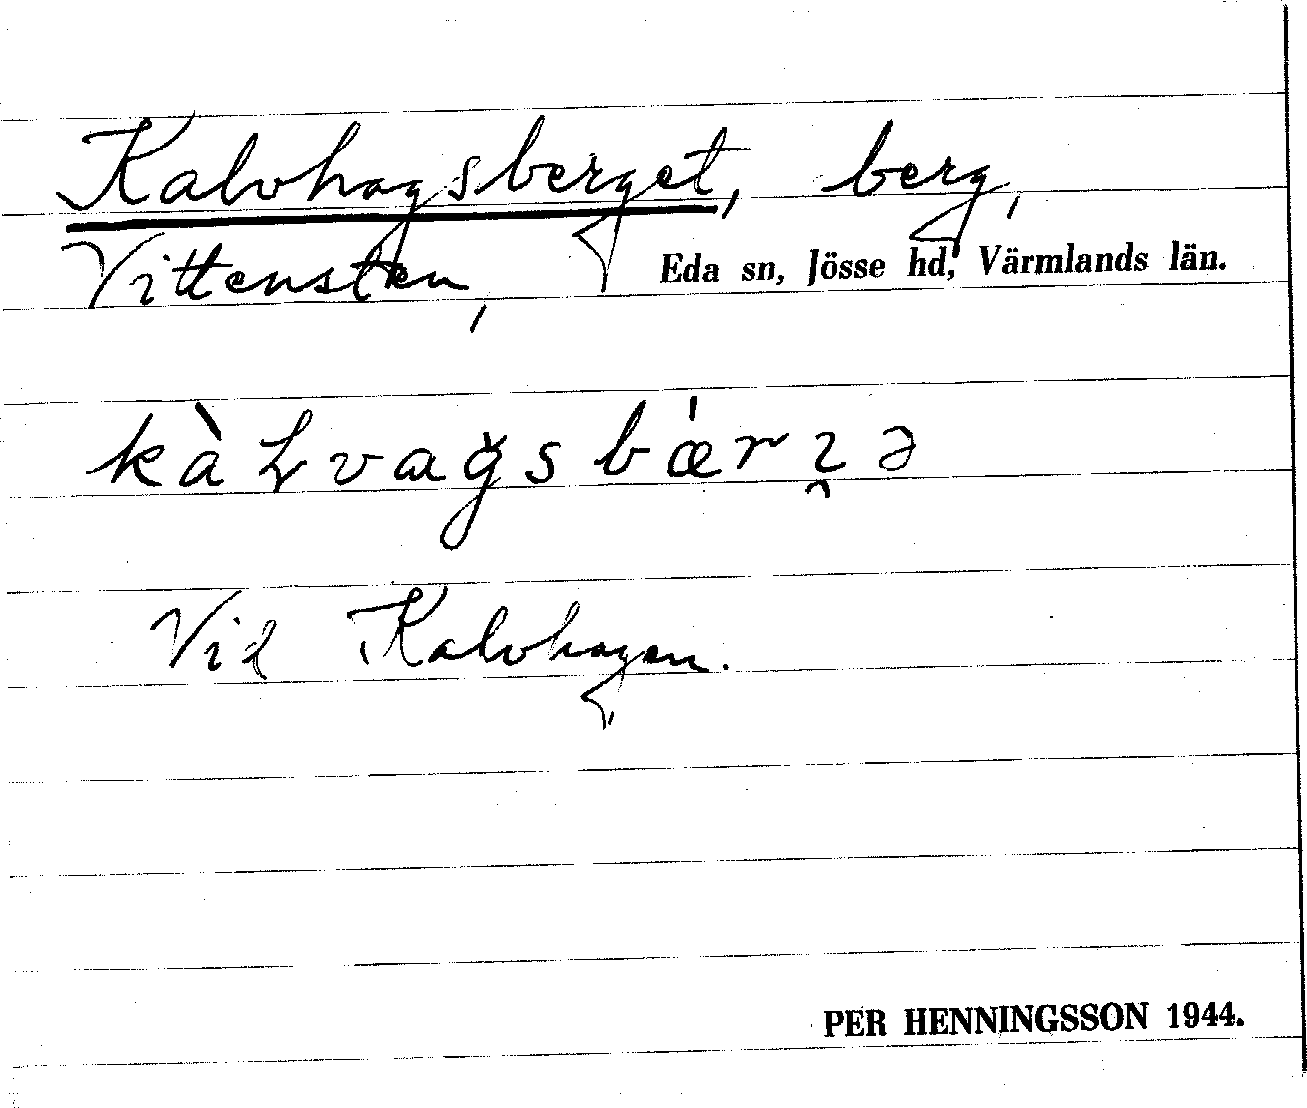 Kalvhagsberget, berg,
Vittensten, Eda sn, Jösse hd, Värmlands län.
Vid Kalvhagen.
PER HENNINGSSON 1944.